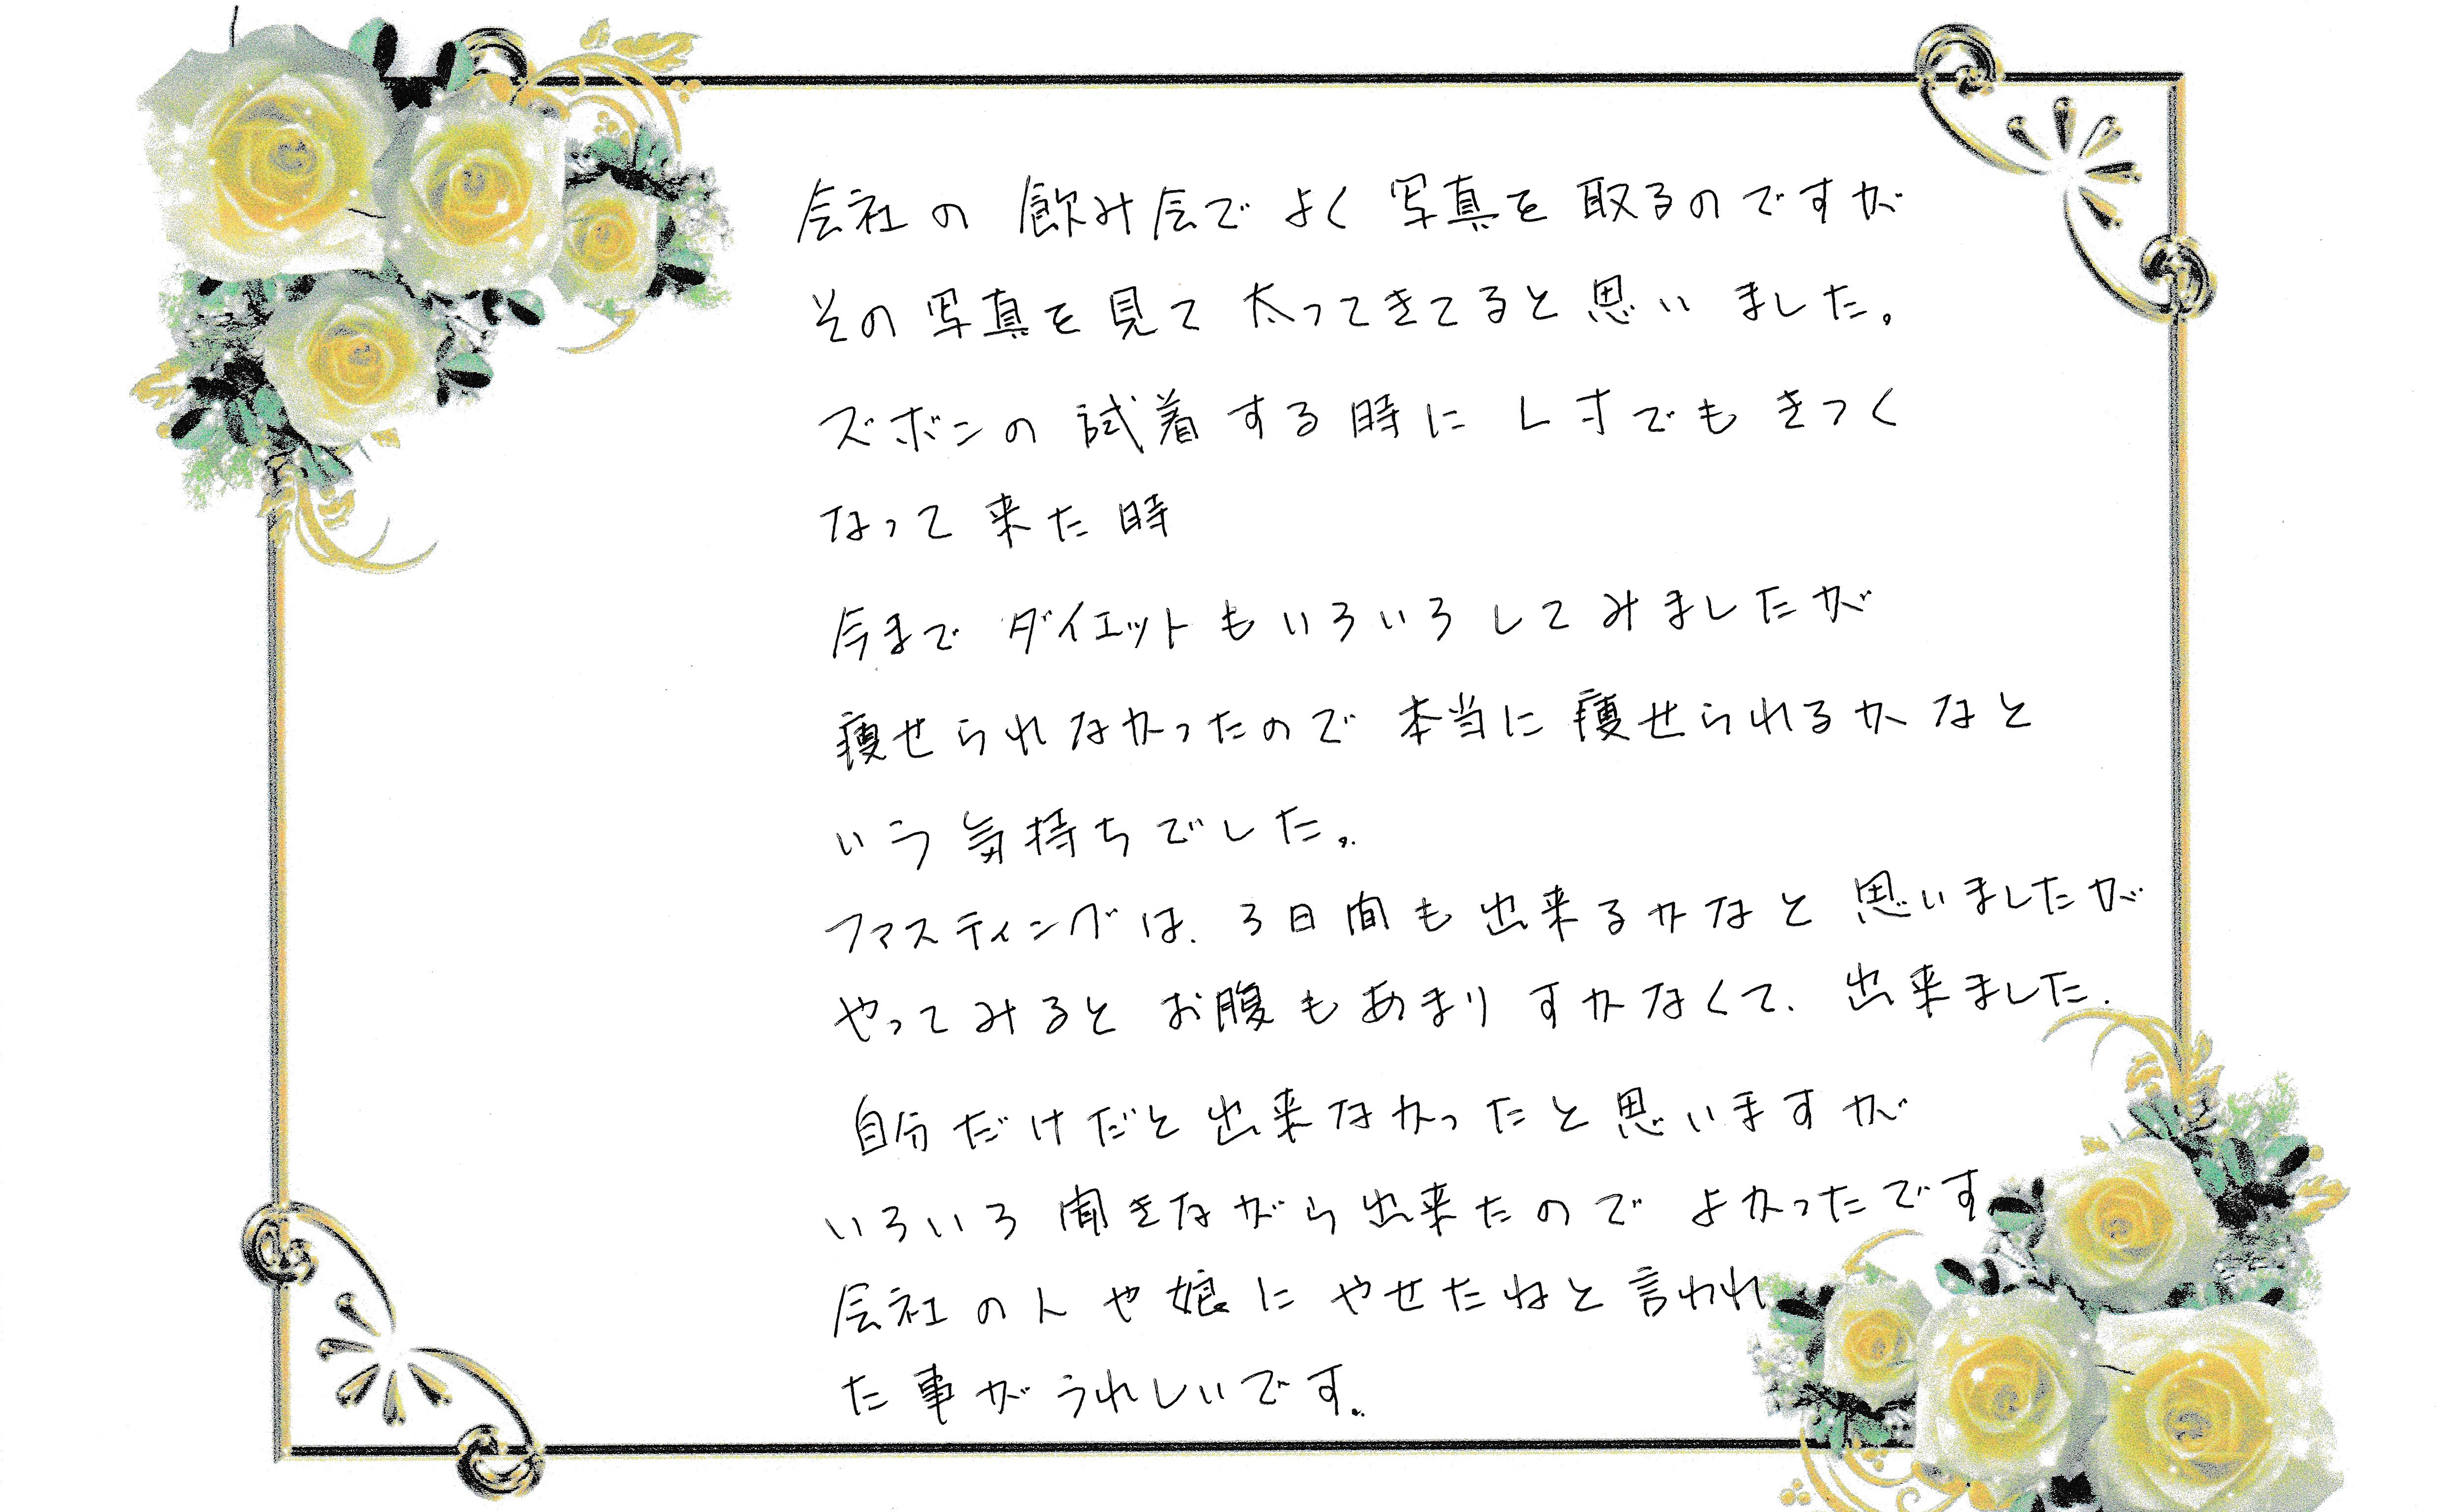 会社の飲み会でよく写真を取るのですが
その写真を見て太ってきてると思いました。
ズボンの試着する時にL寸でもきつく
なって来た時
今までダイエットもいろいろしてみましたが
痩せられなかったので本当に痩せられるかなと
いう気持ちでした。
ファスティングは、3日間も出来るかなと思いましたが
やってみるとお腹もあまりすかなくて、出来ました。
自分だけだと出来なかったと思いますが
いろいろ聞きながら出来たのでよかったです
会社の人や娘にやせたねと言われ
た事がうれしいです。